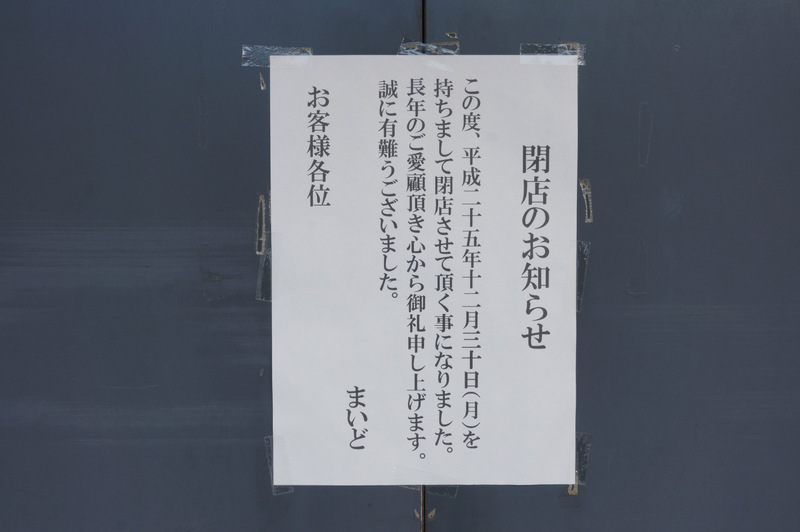 閉店のお知らせ
この度、平成二十五年十二月三十日(月)を
持ちまして閉店させて頂く事になりました。
長年のご愛顧頂き心から御礼申し上げます。
誠に有難うございました。
まいど
お客様各位